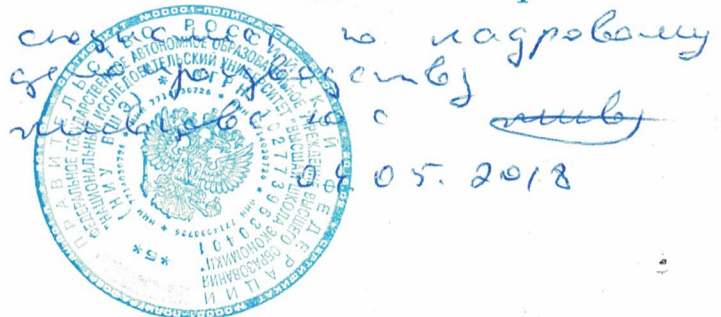 специалист по кадровому
делопроизводству
04.05.2018
ПРАВИТЕЛЬСТВО РОССИЙСКОЙ ФЕДЕРАЦИИ
ФЕДЕРАЛЬНОЕ ГОСУДАРСТВЕННОЕ АВТОНОМНОЕ ОБРАЗОВАТЕЛЬНОЕ УЧРЕЖДЕНИЕ ВЫСШЕГО ОБРАЗОВАНИЯ
"НАЦИОНАЛЬНЫЙ ИССЛЕДОВАТЕЛЬСКИЙ УНИВЕРСИТЕТ "ВЫСШАЯ ШКОЛА ЭКОНОМИКИ"
(НИУ ВШЭ) * ОГРН 1027739630401
* ИНН 7714030726 * ИНН 7714030726 * ИНН 7714030726
*5*